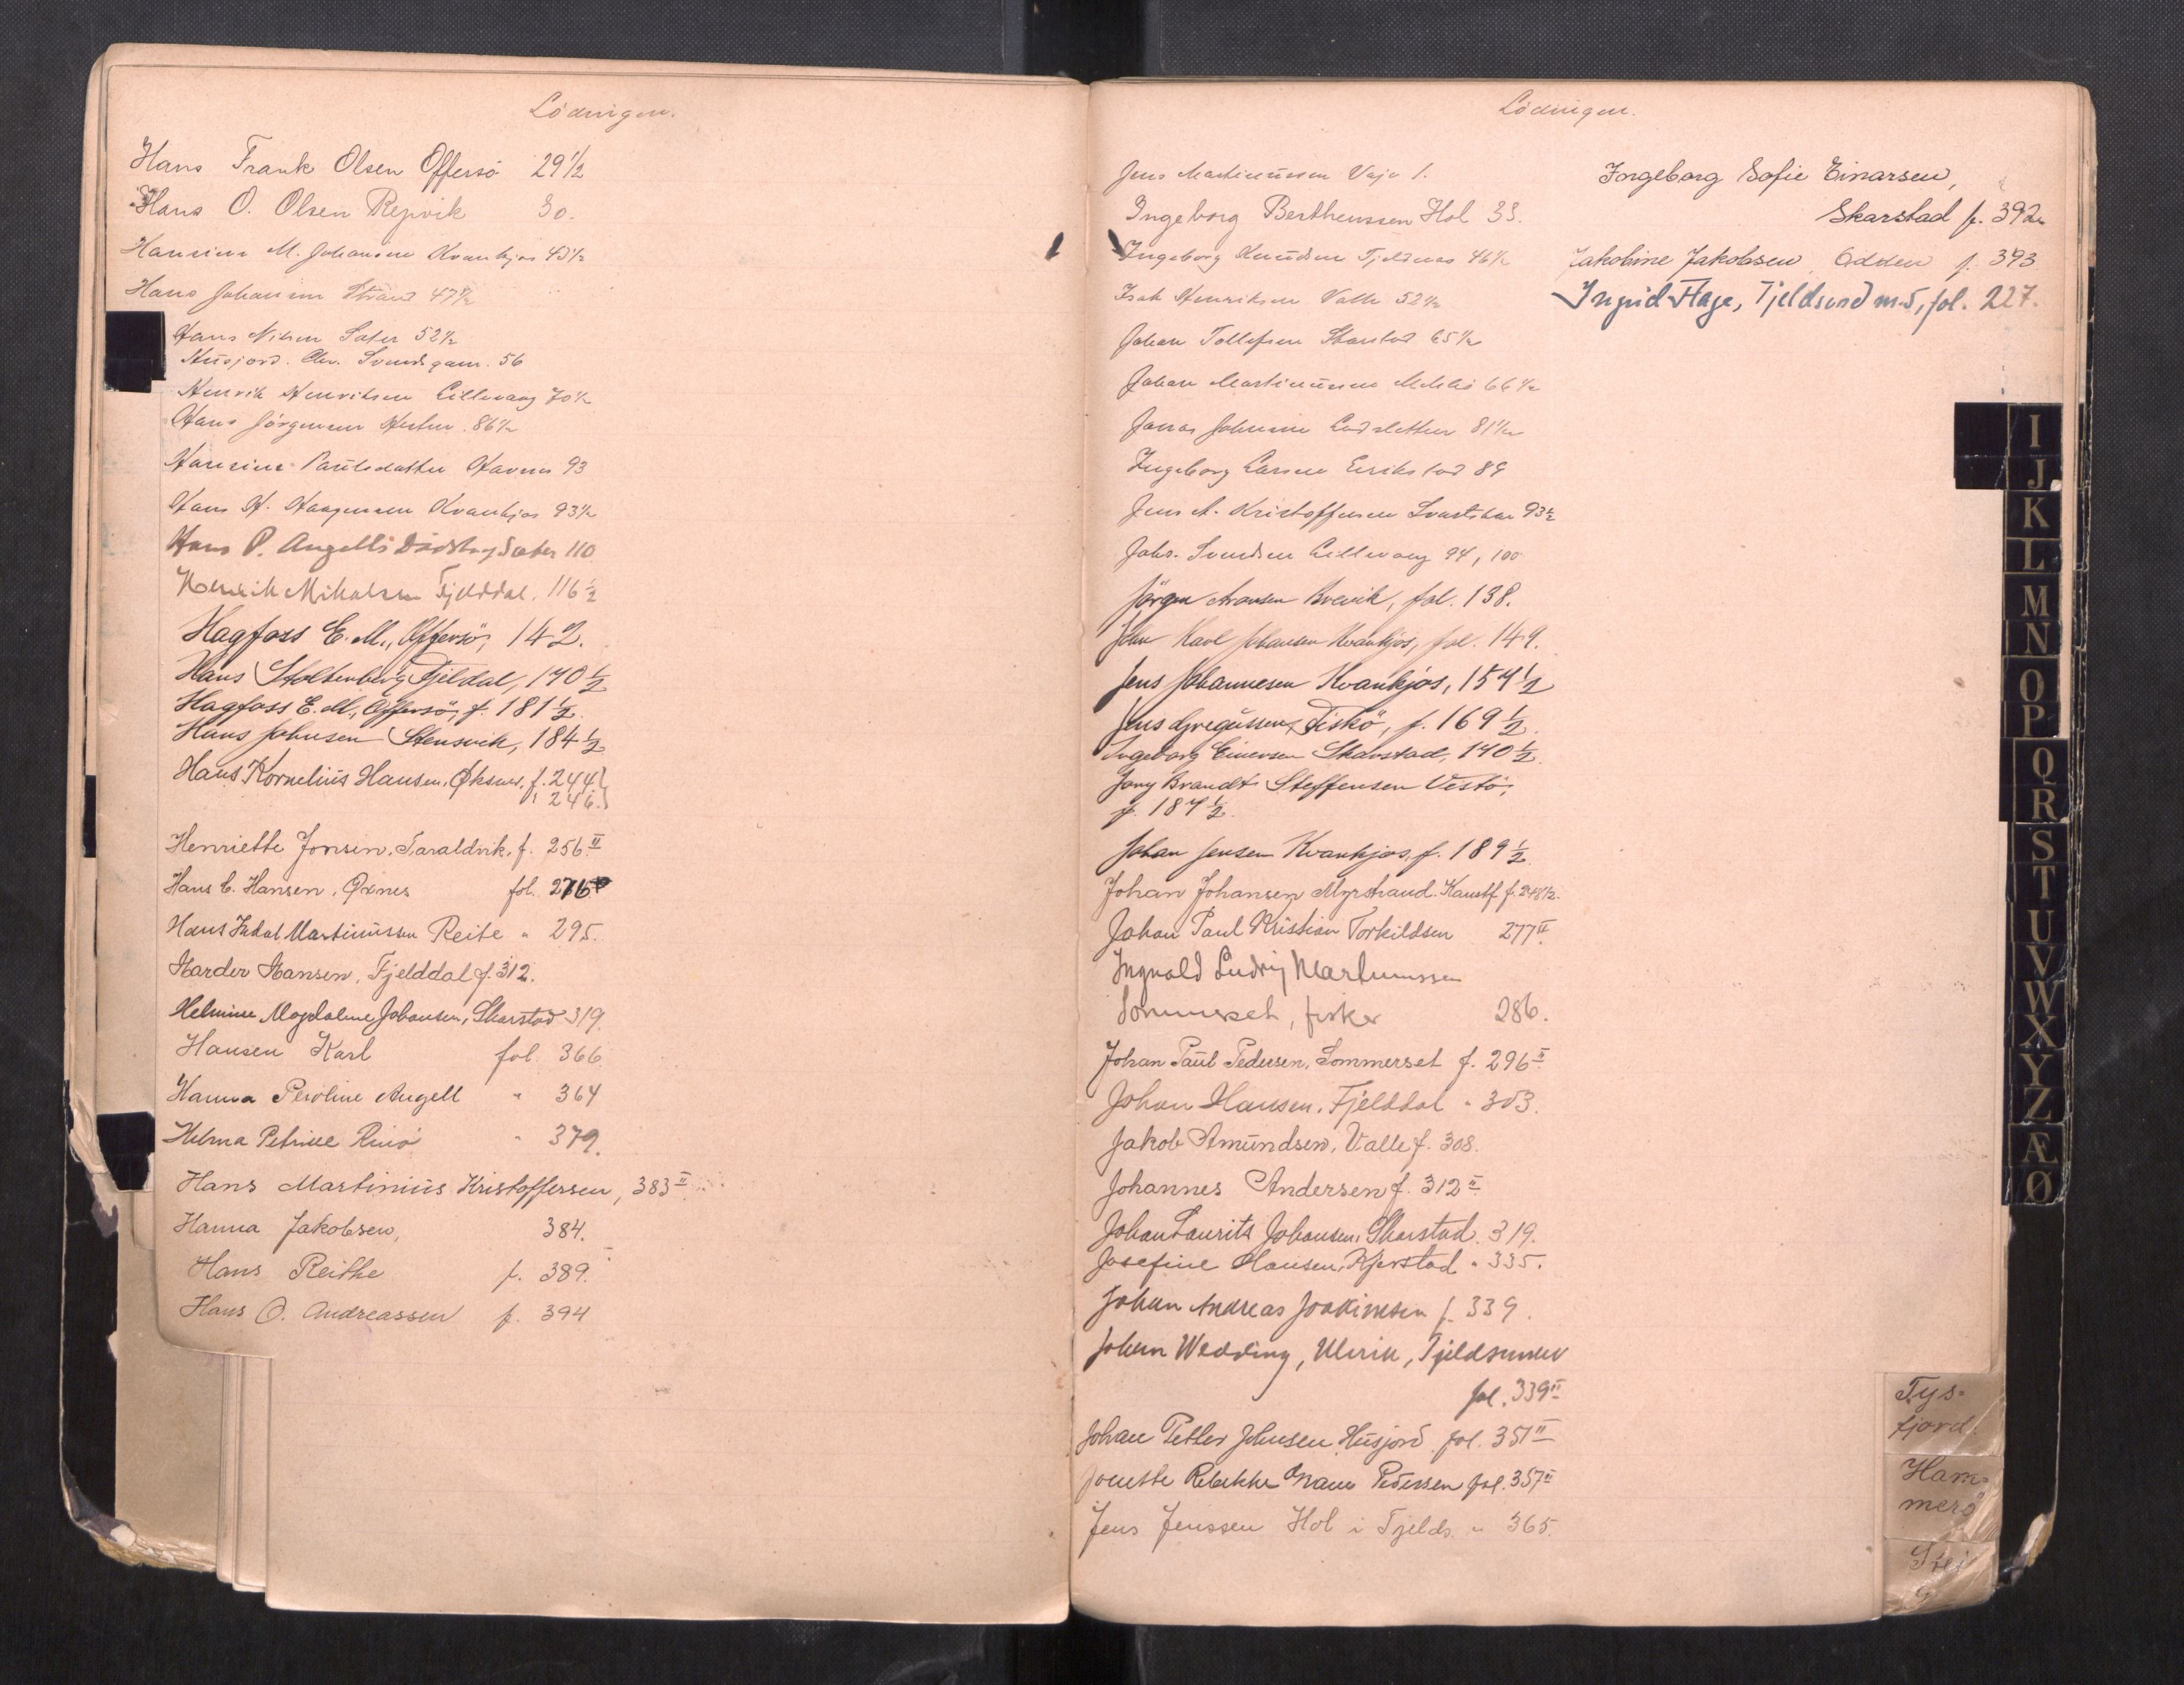 Lödingen.
Hans Frank Olsen Offersö 29 1/2
Hans O. Olsen Repvik 30.
Hansine M. Johansen Kvankjos 43 1/2
Hans Johansen Strand 47 1/2
Hans Nilsen Sæter 52 1/2
Husjord. Chr. Svendsgam. 56
Henrik Henriksen Lillevang 70 1/2
Hans Jörgensen 86 1/2
Hansine Paulsdatter Havnes 93
Hans H. Haagensen Kvankjos 93 1/2
Hans P. Angells Dödsbo, Sæter 110
Henrik Mikalsen Fjelddal. 116 1/2
Hagfoss E. M., Offersö, 142.
Hans Stoltenberg Fjeldal, 170 1/2
Hagfoss E. M., Offersö, f. 181 1/2.
Hans Johnsen Stensvik, 184 1/2
Hans Kornelius Hansen, Øksnes, f. 244
" 246.
Henriette Jonsen, Taraldvik, f. 256 II
Hans C. Hansen, Øxnes fol. 276
Hans Hedal Martinussen Reite " 295.
Harder Hansen, Fjelddal f. 312.
Helmine Magdalene Johansen, Skarstad 319.
Hansen Karl fol. 366
Hanna Peroline Angell " 364
Helma Petrine Rinö " 379.
Hans Martinius Kristoffersen, 383 II
Hanna Jakobsen, 384.
Hans Reithe f. 389.
Hans O. Andreassen f. 394
Lödingen.
Jens Martinussen Vaje 1.
Ingeborg Bertheussen Hol 33.
Ingeborg Knudsen Tjeldnes 46 1/2
Isak Henriksen Valle 52 1/2
Johan Tollefsen Skarstad 65 1/2
Johan Martinussen 66 1/2
Jonas Johnsen 81 1/2
Ingeborg Larsen Erikstad 89
Jens A. Kristoffersen 93 1/2
Johs. Svendsen Lillevang 94, 100
Jörgen Aronsen Brevik, fol. 138.
John Karl Johansen Kvankjos, fol. 149.
Jens Johannesen Kvankjos, 157 1/2
Jens Gregussen, Fiskö, f. 169 1/2.
Ingeborg Einersen Skarstad, 170 1/2.
Jony Brandt Steffensen Vestö,
f. 187 1/2.
Johan Jensen Kvankjos, f. 189 1/2
Johan Johansen Myrstrand. Kanstf. f. 248 1/2.
Johan Paul Kristian Torkildsen 277 II.
Ingvald Ludvig Martinussen
Sommerset, fisker 286.
Johan Paul Pedersen, Sommerset f. 296 II
Johan Hansen, Fjelddal " 303.
Jakob Amundsen, Valle f. 308.
Johannes Andersen f. 312 II
Johan Laurits Johansen, Skarstad. 319.
Josefine Hansen, Kjerstad " 335.
Johan Andreas Joakimsen f. 339.
Johan Wedding, Ulvik, Tjeldsundet
fol. 339 II
Johan Petter Johnsen Husjord fol. 351 II
Jonette Rebekka Pedersen fol. 357 II
Jens Jenssen Hol i Tjelds. " 365.
Ingeborg Sofie Einarsen,
Skarstad f. 392
Jakobine Jakobsen Odden f. 393
Ingrid Hage, Tjeldsund m.5, fol. 227.
I
J
K
L
M
N
O
P
Q
R
S
T
U
V
W
X
Y
Z
Æ
Ø
Tys-
fjord.
Ham-
merö